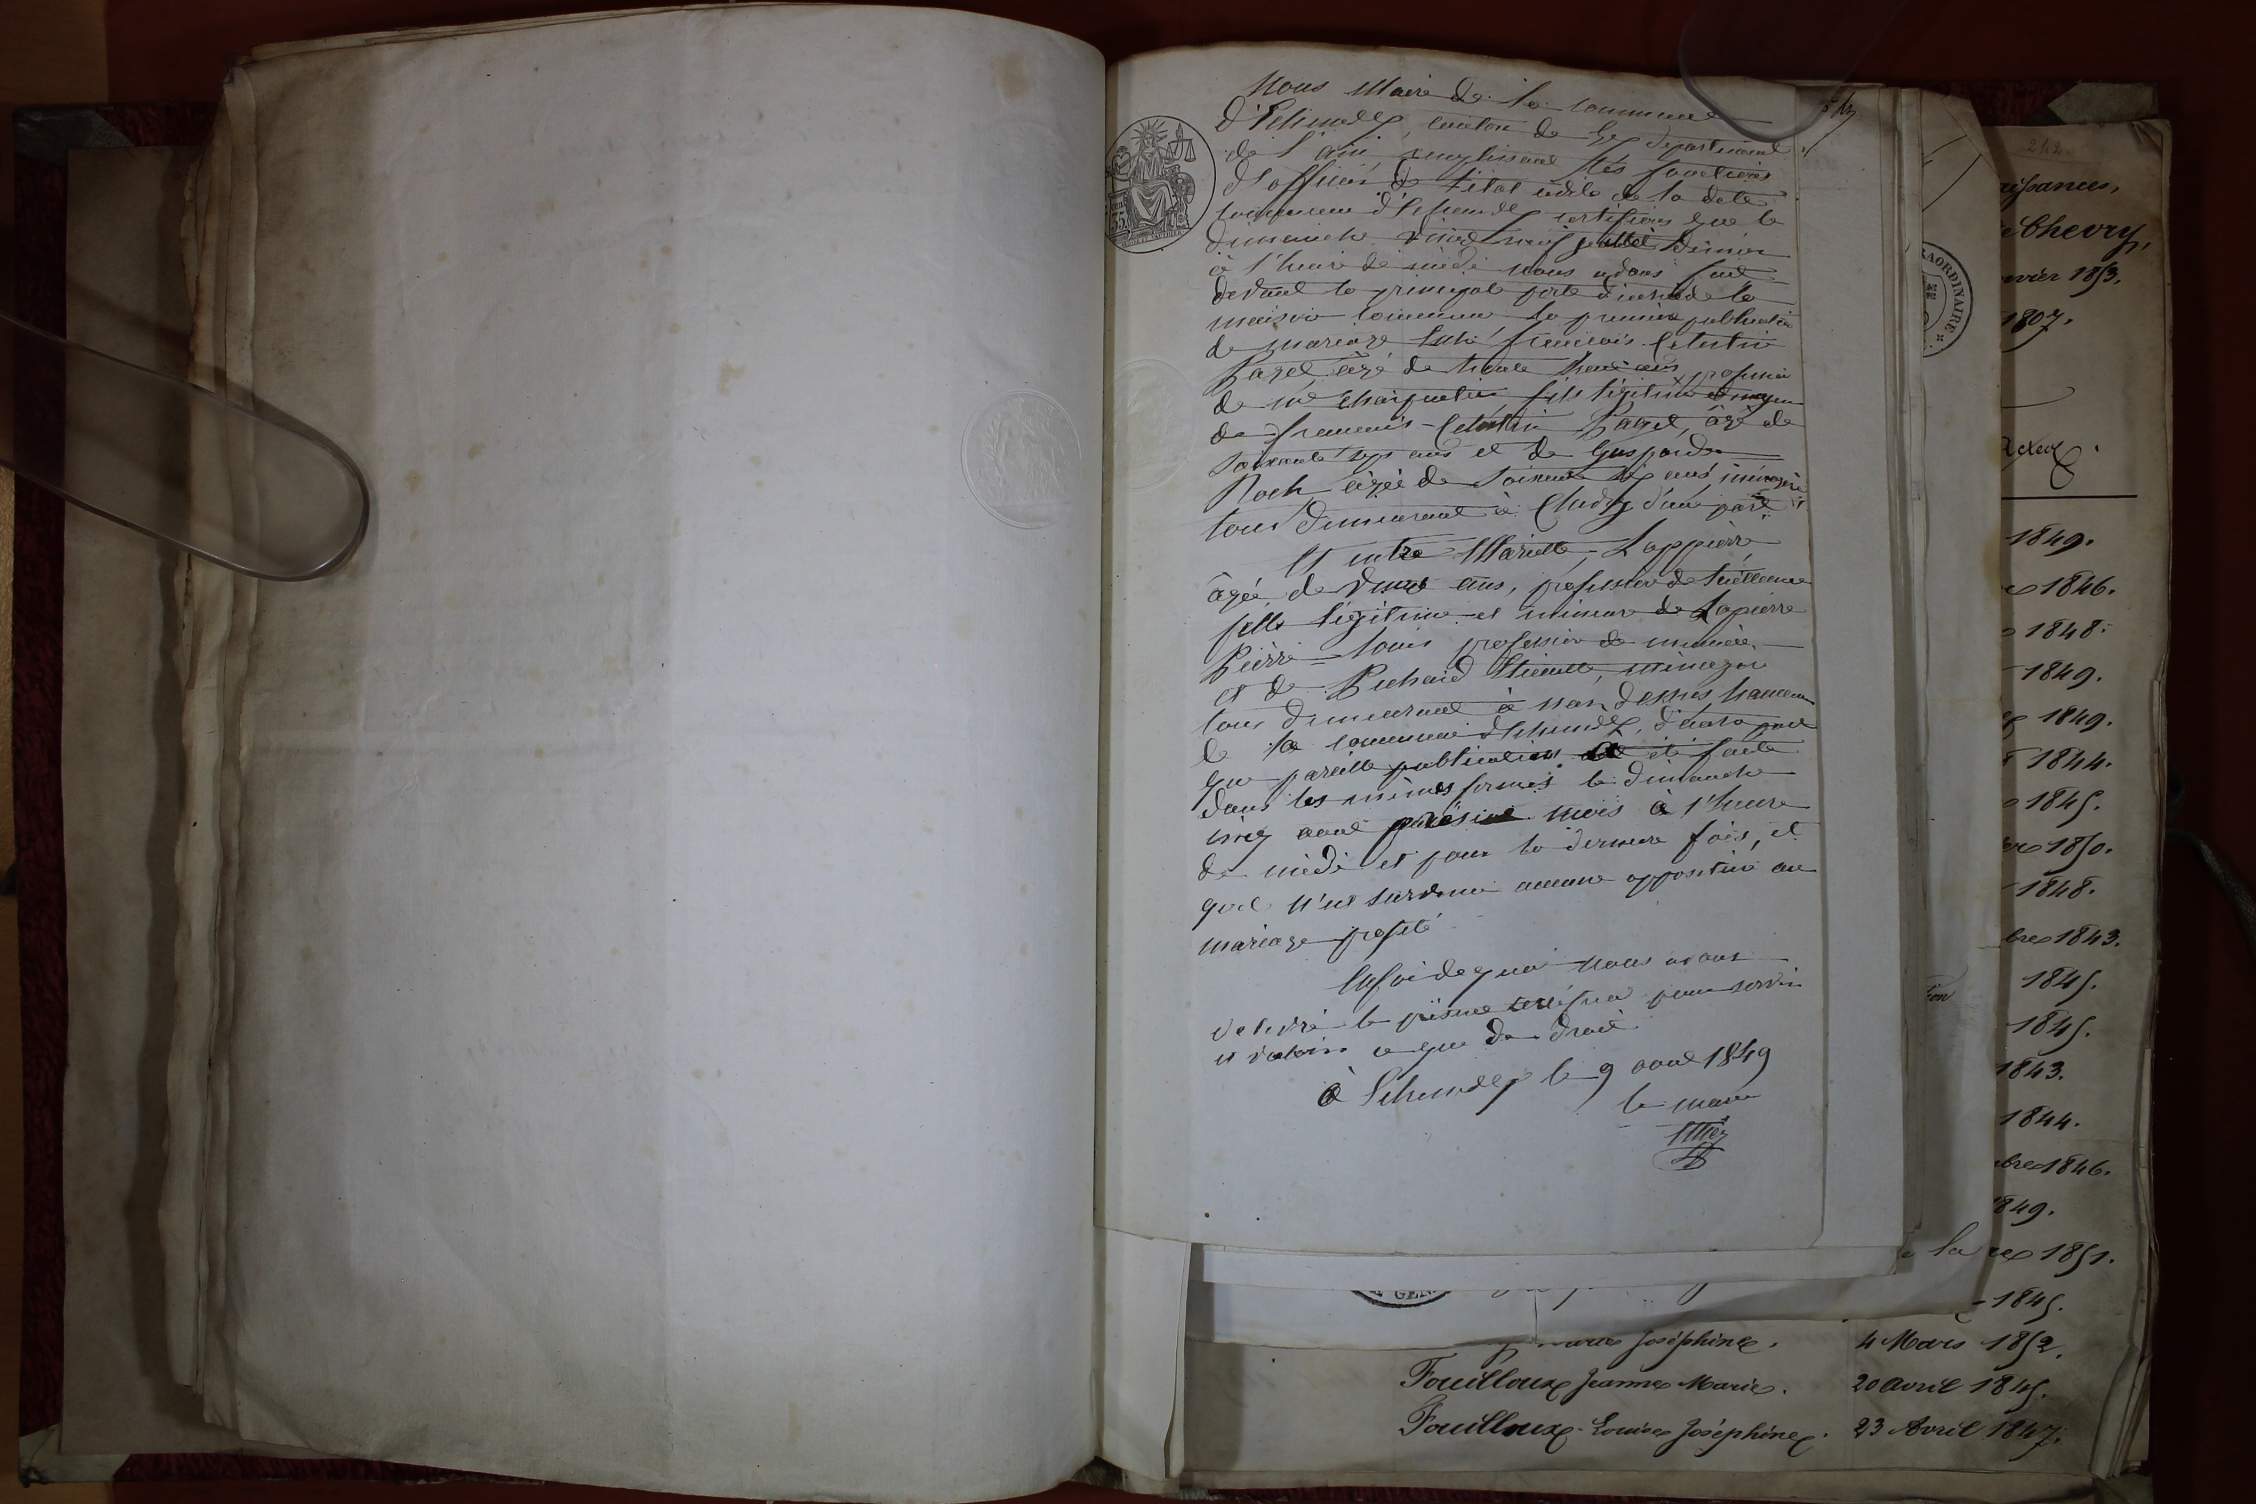 Nous Maire de la commune
d'Echenevex, canton de Gex département
de l'ain, remplissant les fonctions
d'officier de l'état civile de la dite
commune d'Echenevex certifions que le
dimanche vingt neuf juillet dernier
à l'heure de midi nous avons fait
devant la principale porte d'entrée de la
maison commune la première publication
de mariage entre françois Celestin
âgé de trente ans, profession
de charpentier, fils légitime et majeur
de françois Celestin âgé de
soixante sept ans et de Gasparde
Roch âgée de soixante six ans, ménagère
tous demeurant à Chevry d'une part
Et entre Mariette Lappierre
âgée de vingt ans, profession de tailleuse
fille légitime et mineure de Lapierre
Pierre Louis profession de meunier
et de Pochard Etiennette, ménagère
tous demeurant à naz dessus hameau
de la commune d'Echenevex, d'autre part
que pareille publication a été faite
dans les mêmes formes le dimanche
cinq aout présent mois à l'heure
de midi et pour la dernière fois, et
qu'il n'est survenu aucune opposition au
mariage projeté
En foi de quoi nous avons
delivré le présent certificat pour servir
et valoir ce que de droit
à Echenevex le 9 aout 1849
le maire
242.
Naissances,
Chevry,
Janvier 1853.
1807.
1849.
1846.
1848.
1849.
1849.
1844.
1845.
1850.
1848.
bre 1843.
1845.
1845.
1843.
1844.
bre 1846.
1849.
la
1851.
1845.
GEN
Joséphine.
4 Mars 1852.
Fouilloux Jeanne Marie.
20 avril 1845.
Fouilloux Louise Joséphine.
23 Avril 1847.
RAORDINAIRE